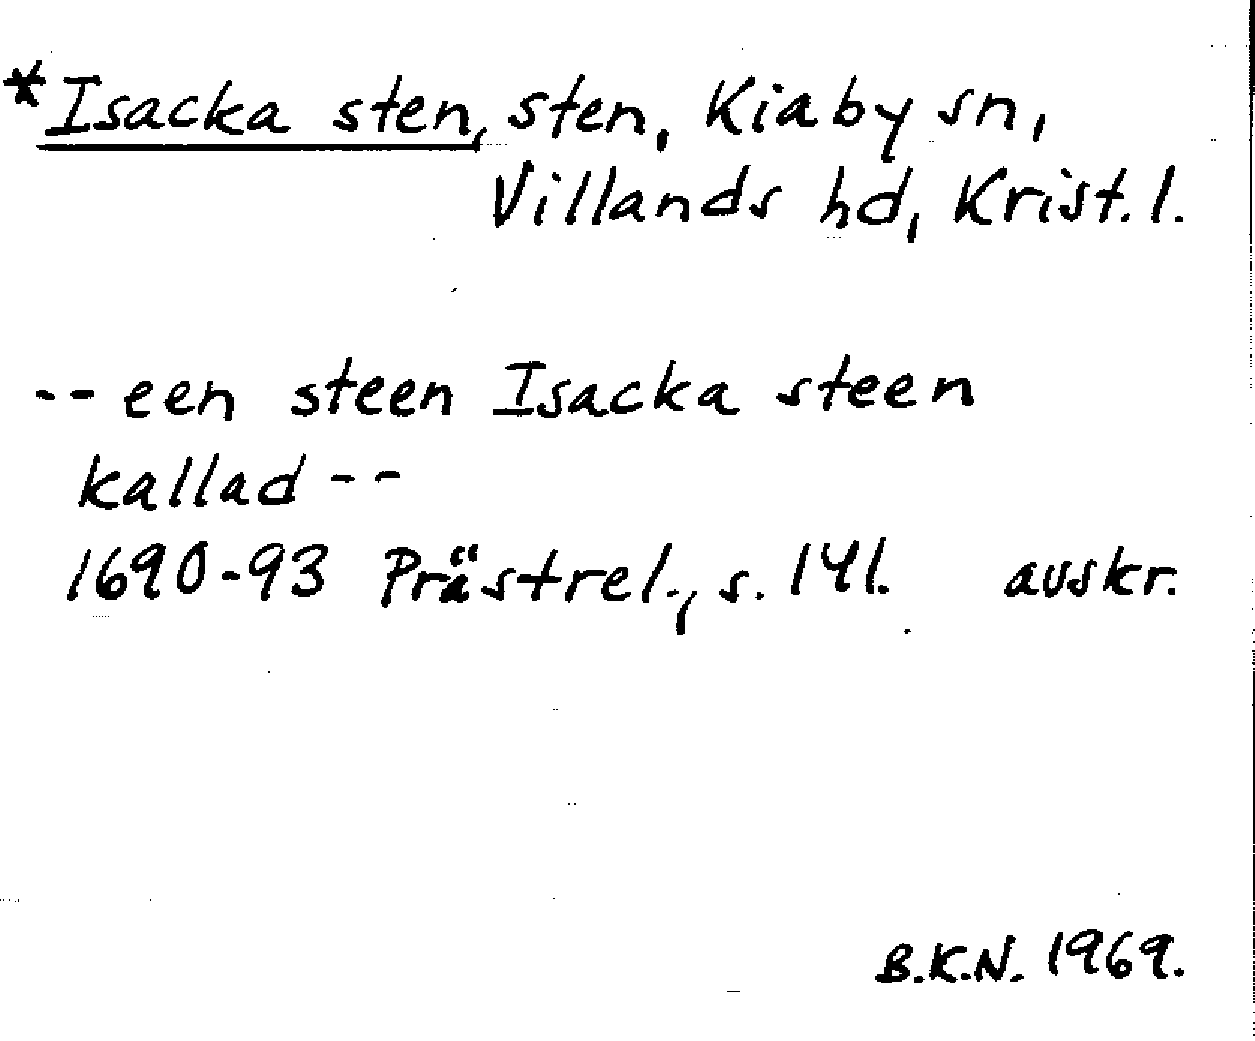 *Isacka sten, sten, Kiaby sn,
Villands hd, Krist. l.
-- een steen Isacka steen
kallad --
1690-93 Prästrel., s. 141. avskr.
B.K.N. 1969.